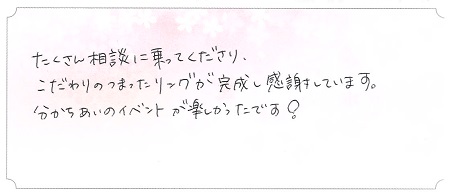 たくさん相談に乗ってくださり、
こだわりのつまったリングが完成し感謝しています。
分かちあいのイベントが楽しかったです！